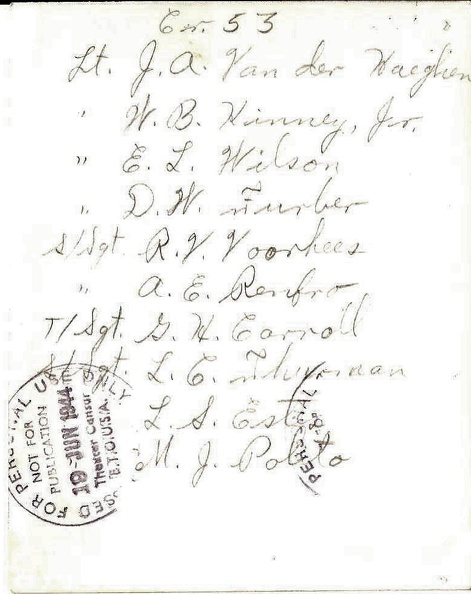 Cr. 53
Lt. J. A. Van der Haeghen
" W. B. Kinney, Jr.
" E. L. Wilson
" D. W. Furber
S/Sgt. R. V. Voorhees
" A. E. Renfro
T/Sgt. G. H. Carroll
S/Sgt. L. E. Thurman
L. S.
M. J. Polito
NOT FOR
PUBLICATION
19 JUN 1944
Theater Censor
E.T.O.U.S.A.
PERSONAL
PERSONAL